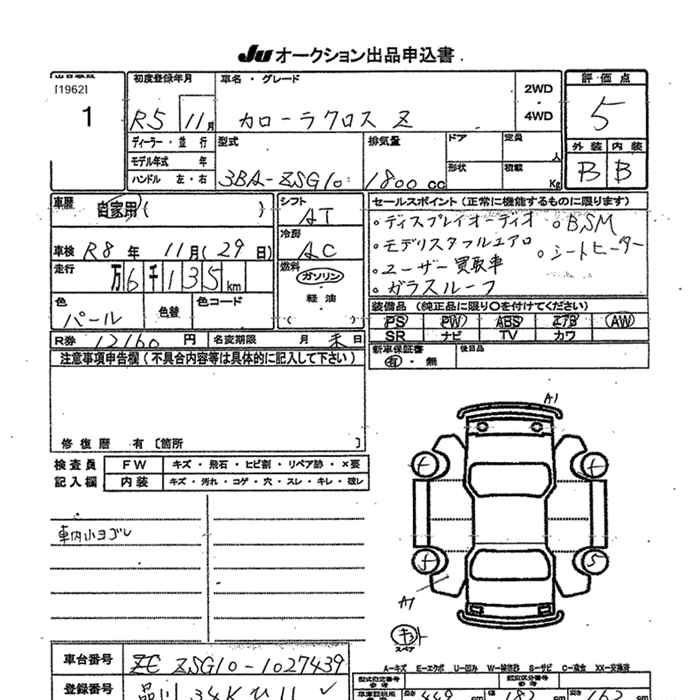 JU オークション出品申込書
[1962]
1
初度登録年月
R5 11月
車名・グレード
カローラクロス Z
2WD
・
4WD
評・価・点
5
ディーラー・並行
モデル年式 年
ハンドル 左・右
型式
3BA-ZSG10
排気量
1800 cc
ドア
定員
人
形状
積載
Kg
外装 内装
B B
車歴
自家用( )
シフト
AT
セールスポイント(正常に機能するものに限ります)
。ディスプレイオーディオ 。BSM
。モデリスタフルエアロ 。シートヒーター
。ユーザー買取車
。ガラスルーフ
車検 R8 年 11月(29日)
冷房
AC
走行
万6千135km
燃料
ガソリン
・
軽油
( )
色
パール
色替
色コード
装備品(純正品に限り〇を付けてください)
PS PW ABS エアB AW
SR ナビ TV カワ
R券 12160 円
名変期限 月 末日
新車保証書
有・無
後日品
注意事項申告欄(不具合内容等は具体的に記入して下さい)
修復歴 有[箇所 ]
検査員
記入欄
FW キズ・飛石・ヒビ割・リペア跡・×要
内装 キズ・汚れ・コゲ・穴・スレ・キレ・破レ
車内小ヨゴレ
A1
5
A1
スペア
A-キズ E-エクボ U-凹み
車台番号
ZSG10-1027439
登録番号
品川
型式指定番号
類別区分番号
449 cm 182 cm 162 cm